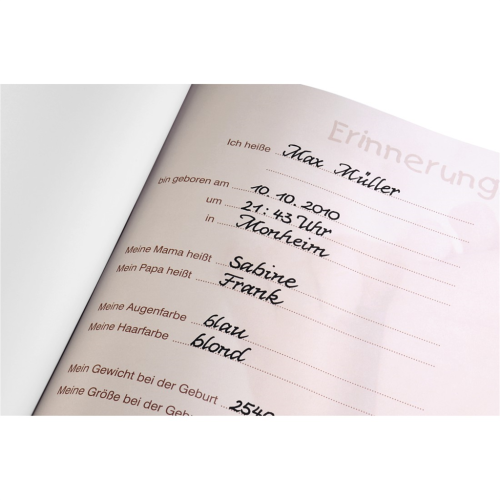 Erinnerung
Ich heiße Max Müller
bin geboren am 10.10.2010
um 21:43 Uhr
in Monheim
Meine Mama heißt Sabine
Mein Papa heißt Frank
Meine Augenfarbe blau
Meine Haarfarbe blond
Mein Gewicht bei der Geburt 2540
Meine Größe bei der Gebu